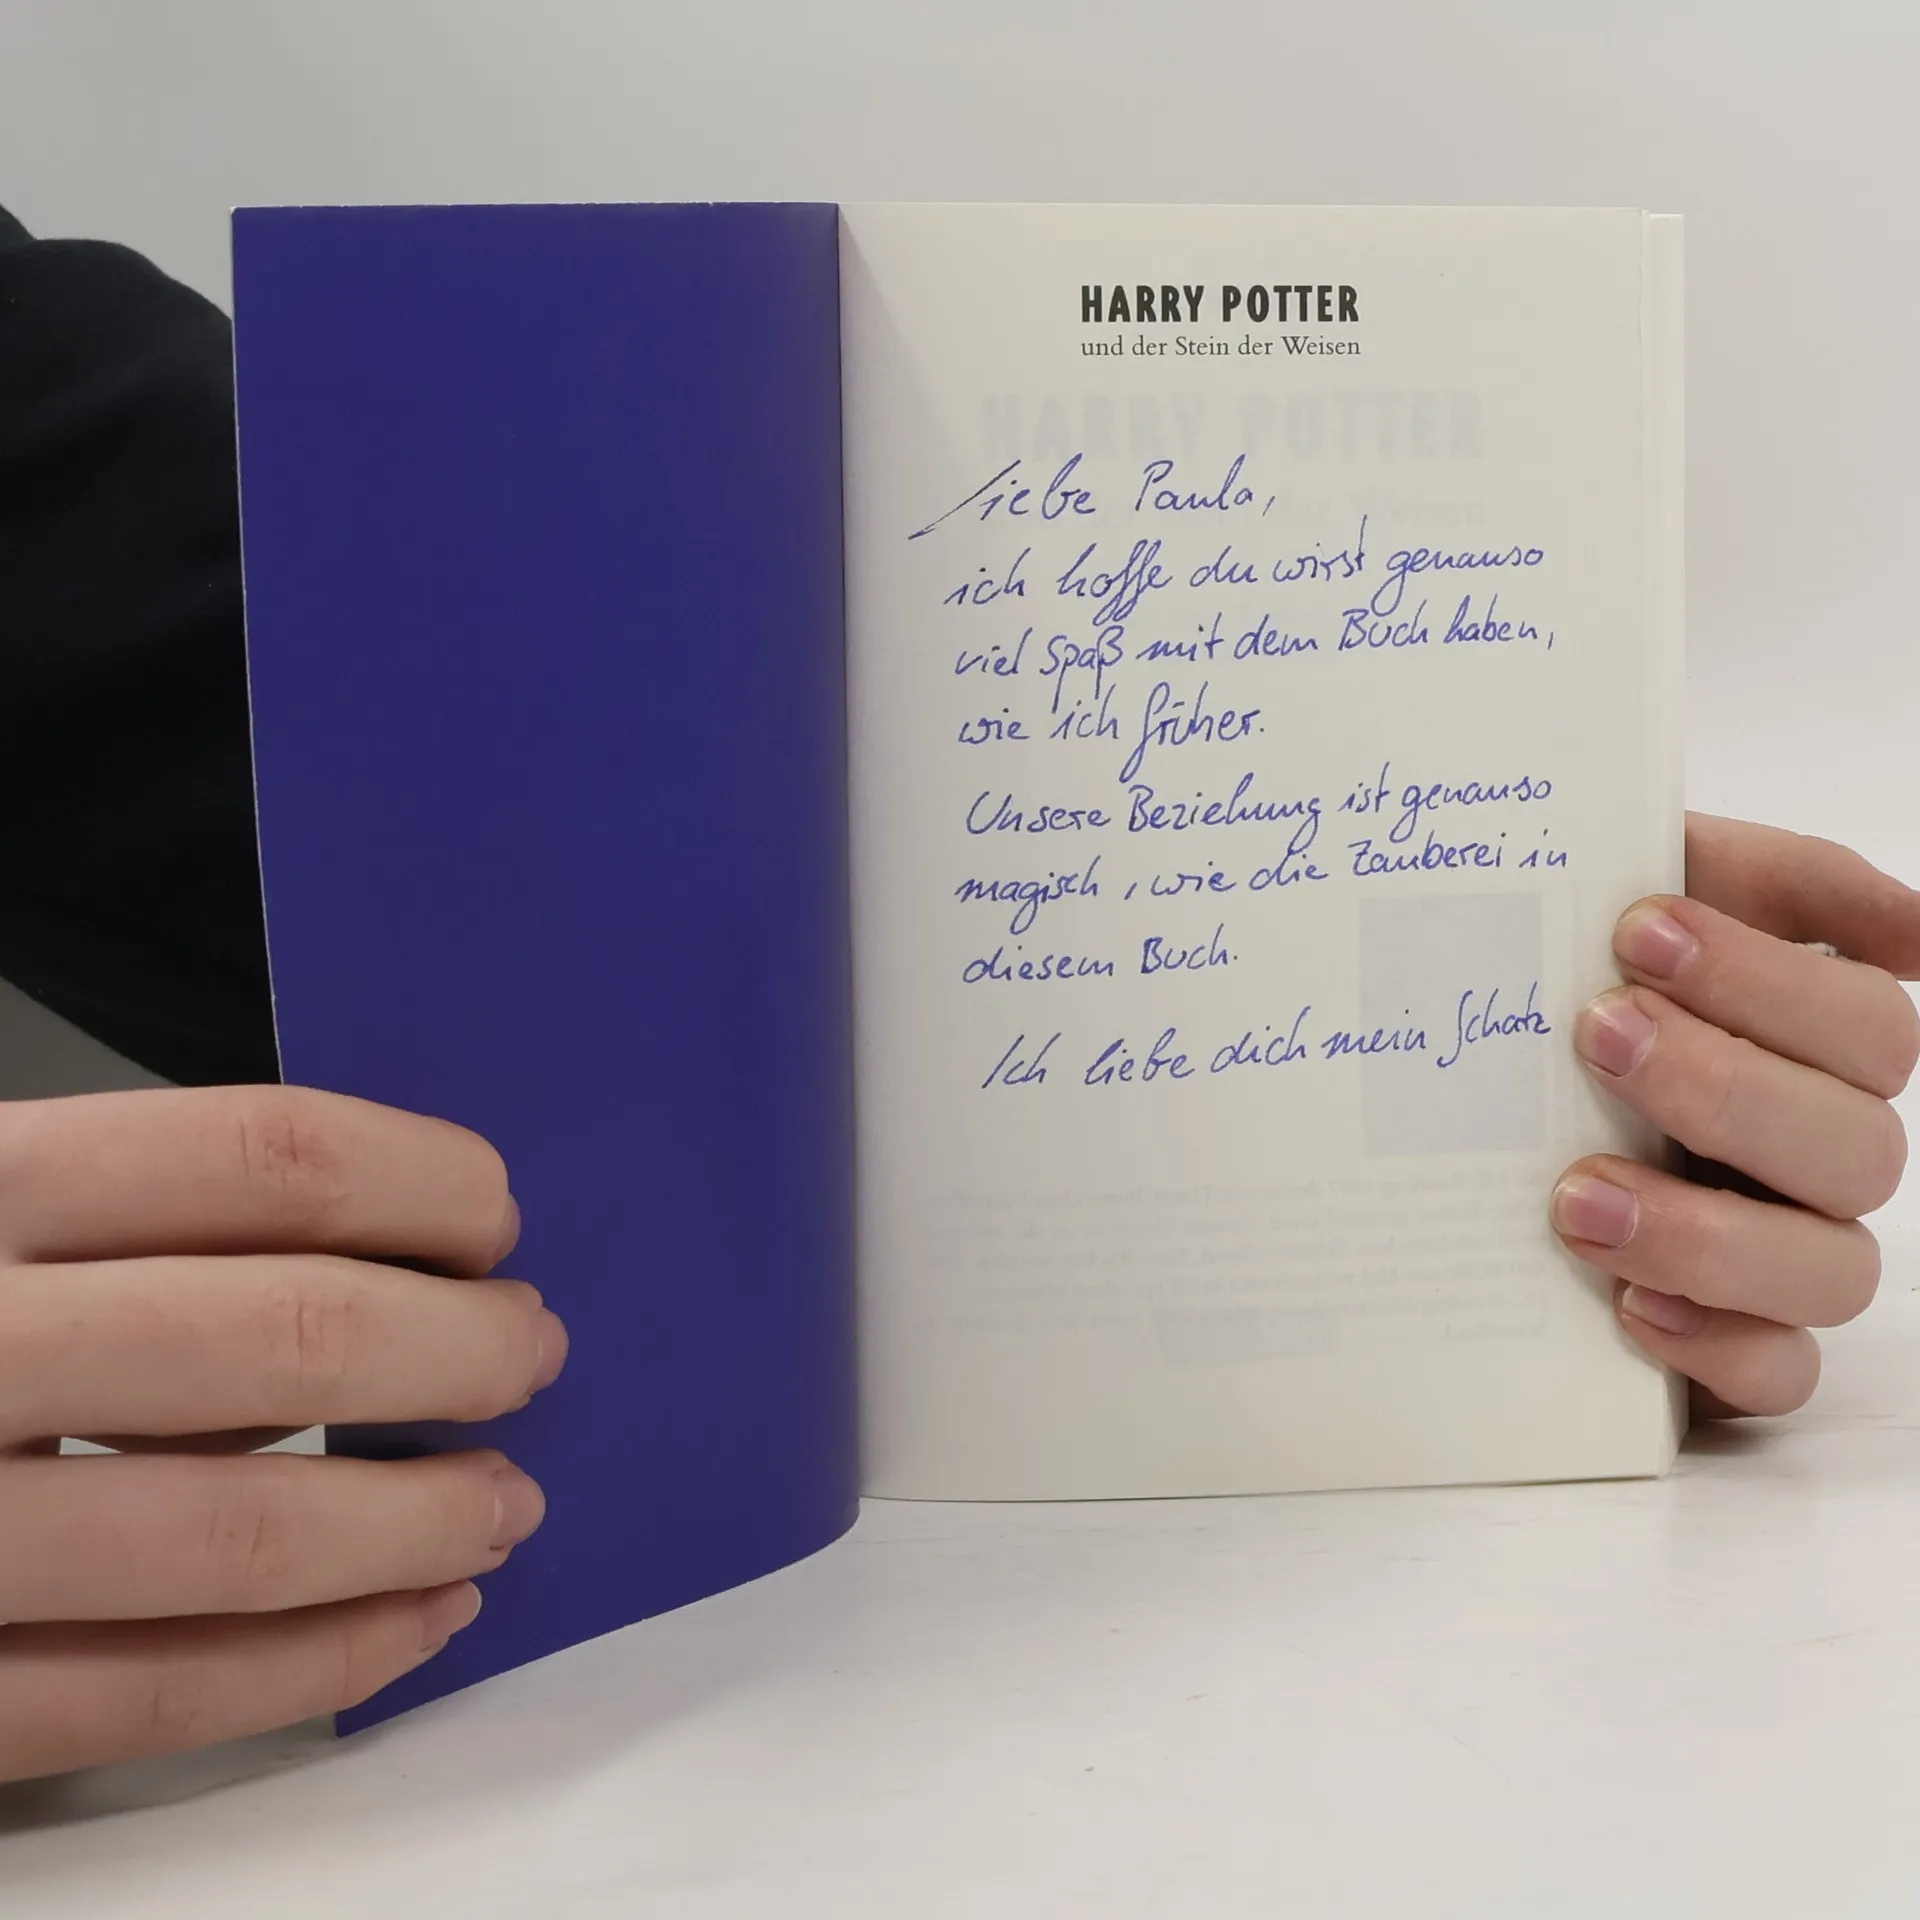 HARRY POTTER
und der Stein der Weisen
Liebe Paula,
ich hoffe du wirst genauso
viel Spaß mit dem Buch haben,
wie ich früher.
Unsere Beziehung ist genauso
magisch, wie die Zauberei in
diesem Buch.
Ich liebe dich mein Schatz